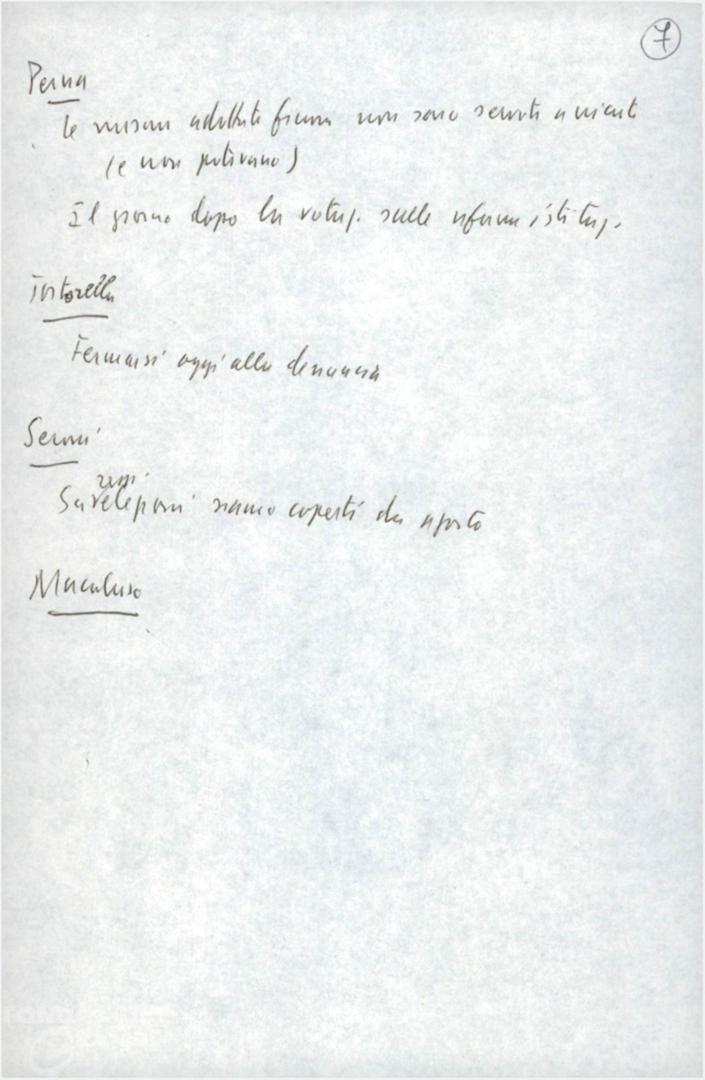 7
Perna
le misure adottate finora non sono servite a niente
(e non potevano)
Il giorno dopo la votaz. sulle riforme istituz.
Tortorella
Fermarsi oggi alla denuncia
Seroni
siamo coperti da agosto
Macaluso